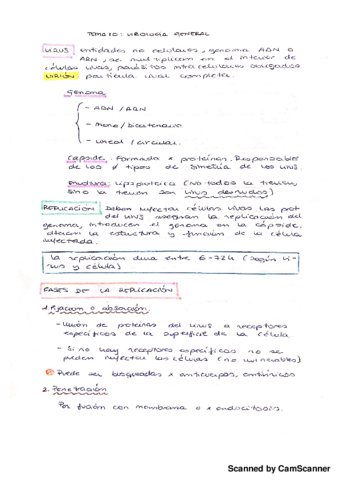 TEMA 10: VIROLOGÍA GENERAL
VIRUS entidades no celulares, genoma ADN o
ARN, se multiplican en el interior de
células vivas, parásitos intracelulares obligados
VIRIÓN partícula viral completa.
Genoma
- ADN / ARN
- mono / bicatenario
- Lineal / circular.
Cápside. Formada x proteínas. Responsable
de los ≠ tipos de simetría de los virus.
Envoltura: Lipoproteica (No todos la tienen,
sino la tienen son virus desnudos)
REPLICACIÓN Deben infectar células vivas las prot
del virus aseguran la replicación del
genoma, introducen el genoma en la cápside.
alteran la estructura y función de la célula
infectada.
La replicación dura entre 6-72h (según vi-
rus y célula)
FASES DE LA REPLICACIÓN
1. Fijación o absorción.
- Unión de proteínas del virus a receptores
específicos de la superficie de la célula.
- Si no hay receptores específicos no se
pueden infectar las células (no vulnerables)
Puede ser bloqueadas x anticuerpos, antivíricos
2. Penetración
Por fusión con membrana o x endocitosis.
Scanned by CamScanner